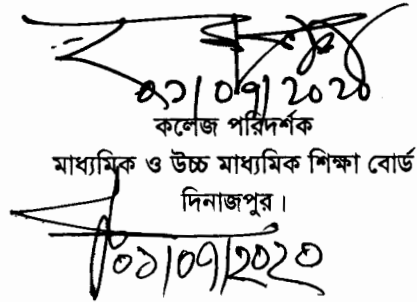 ০১/০৭/২০২০
কলেজ পরিদর্শক
মাধ্যমিক ও উচ্চ মাধ্যমিক শিক্ষা বোর্ড
দিনাজপুর।
০১/০৭/২০২০